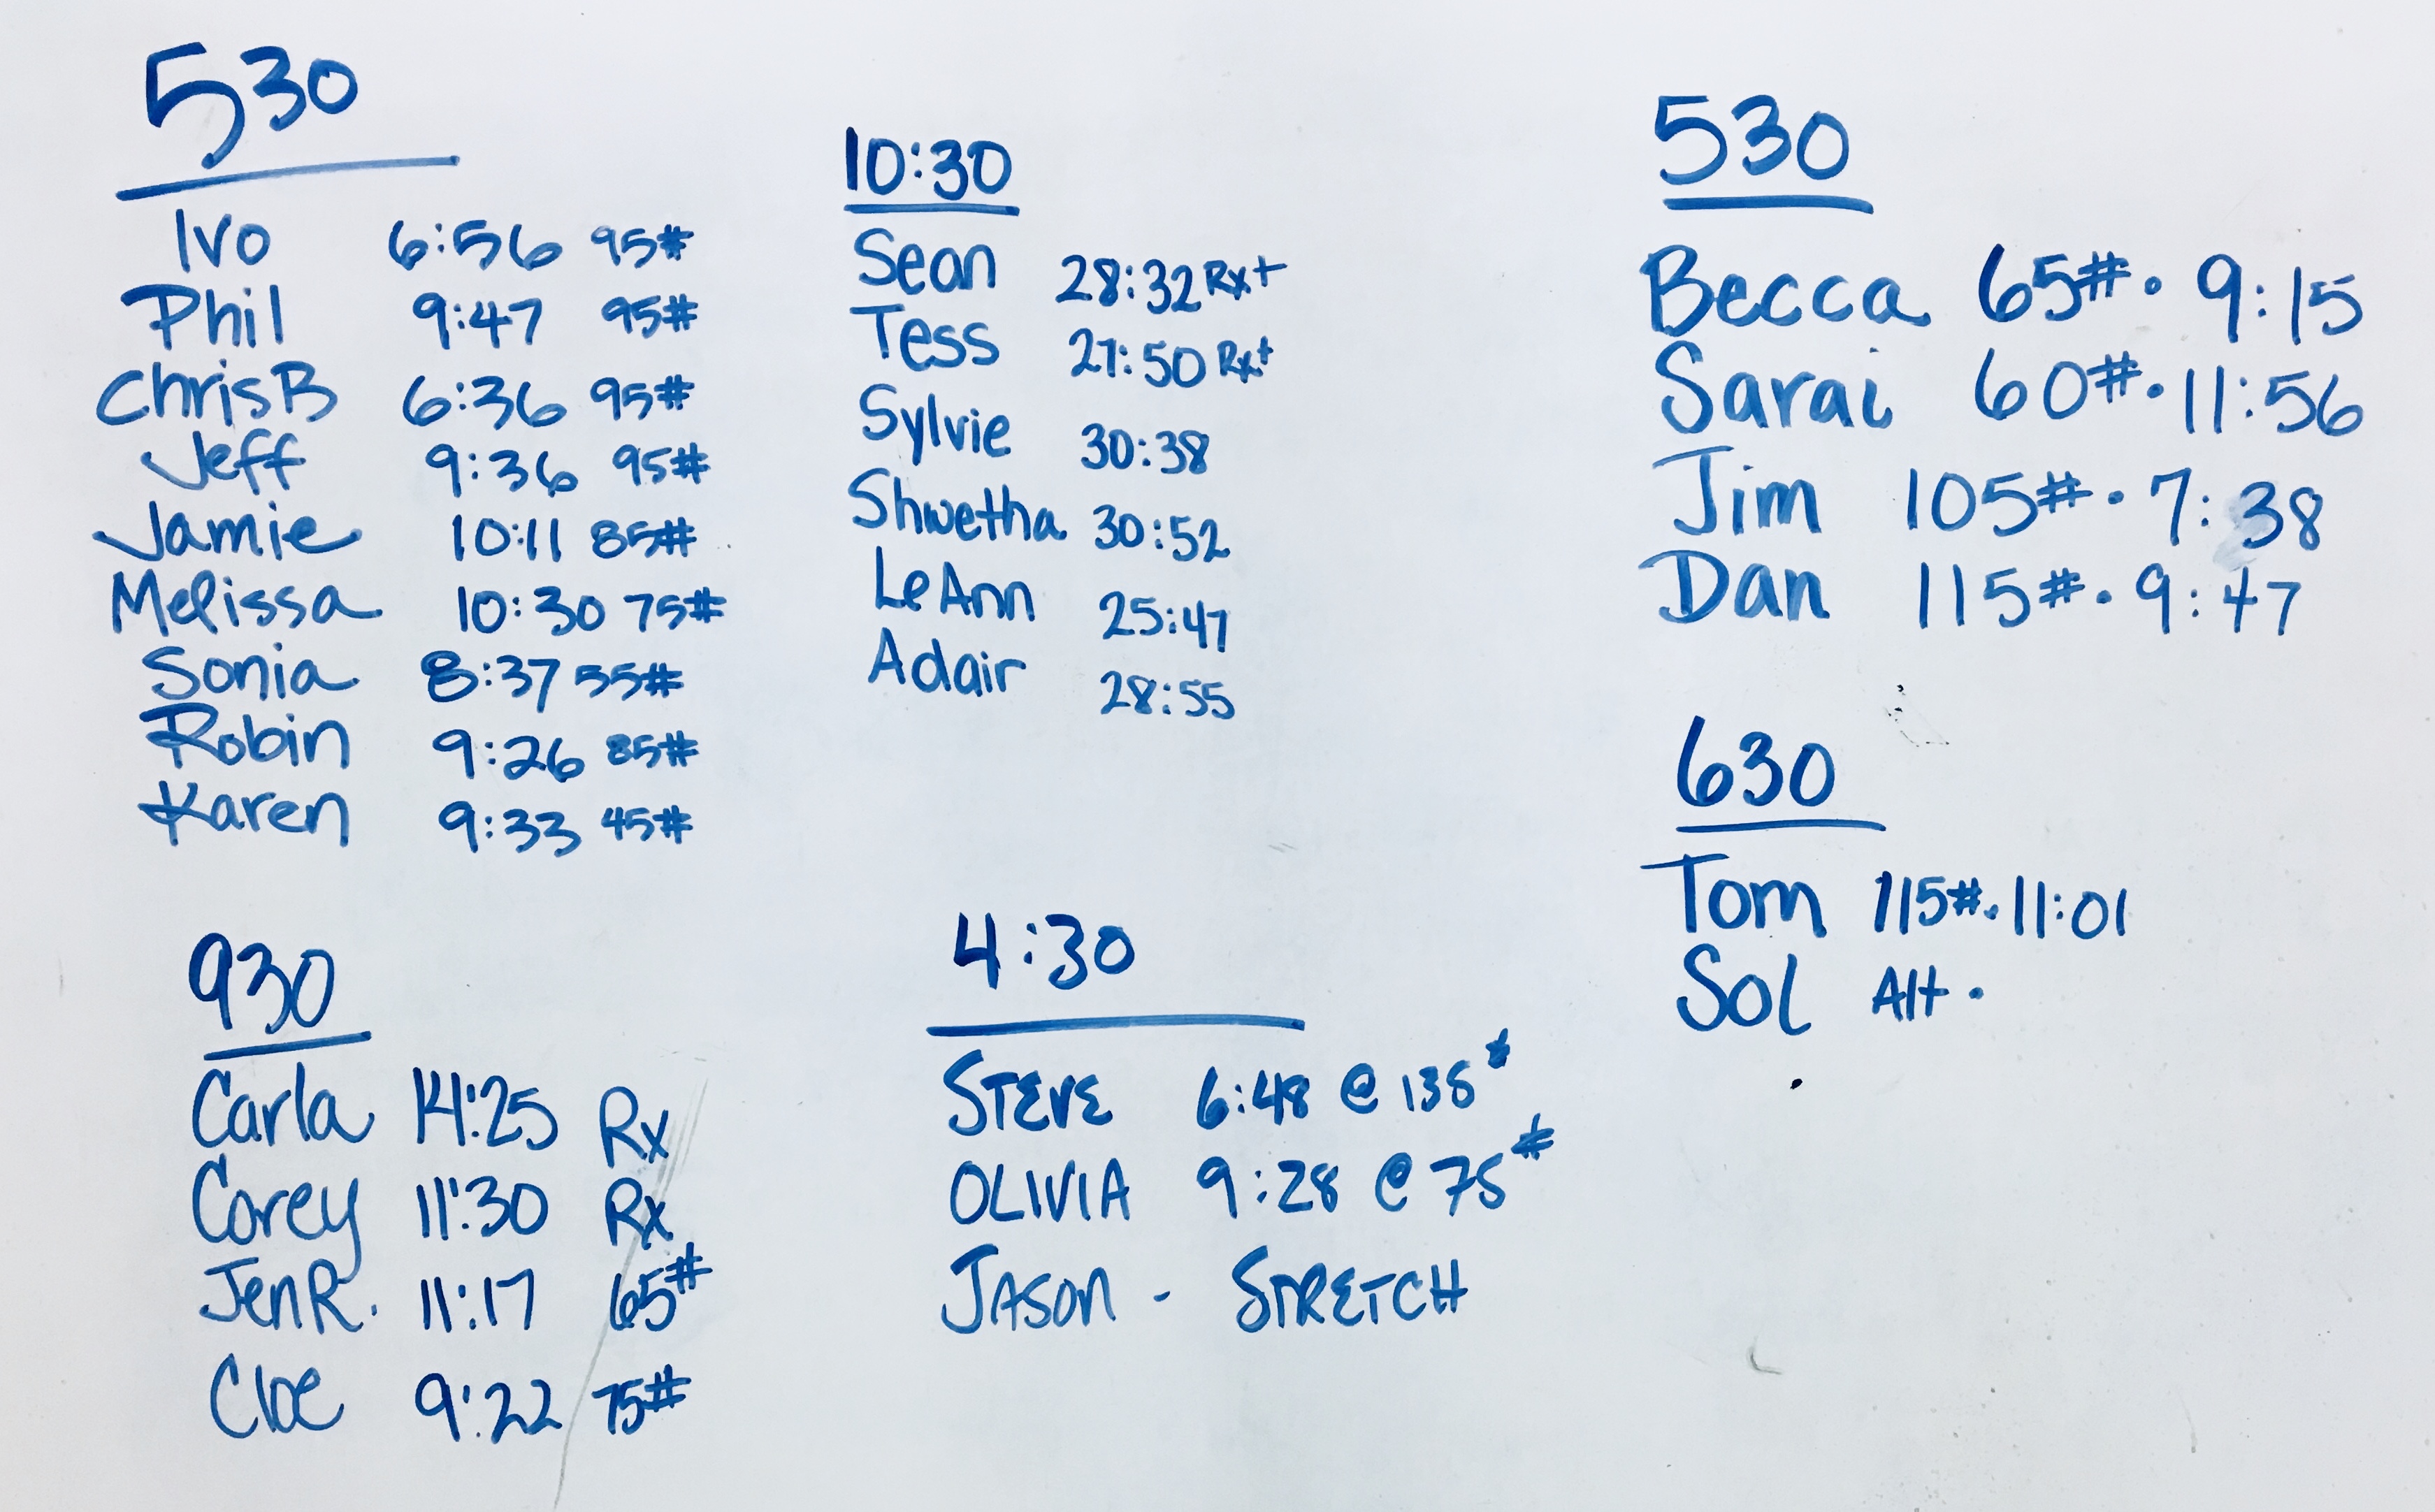 530
Ivo 6:56 95#
Phil 9:47 95#
Chris B 6:36 95#
Jeff 9:36 95#
Jamie 10:11 85#
Melissa 10:30 75#
Sonia 8:37 55#
Robin 9:26 85#
Karen 9:33 45#
930
Carla 14:25 Rx
Corey 11:30 Rx
Jen R. 11:17 65#
Cloe 9:22 75#
10:30
Sean 28:32 Rx+
Tess 27:50 Rx+
Sylvie 30:38
Shwetha 30:52
LeAnn 25:47
Adair 28:55
4:30
STEVE 6:48 @ 135#
OLIVIA 9:28 @ 75#
JASON - STRETCH
530
Becca 65# • 9:15
Sarai 60# • 11:56
Jim 105# • 7:38
Dan 115# • 9:47
630
Tom 115# • 11:01
Sol Alt •